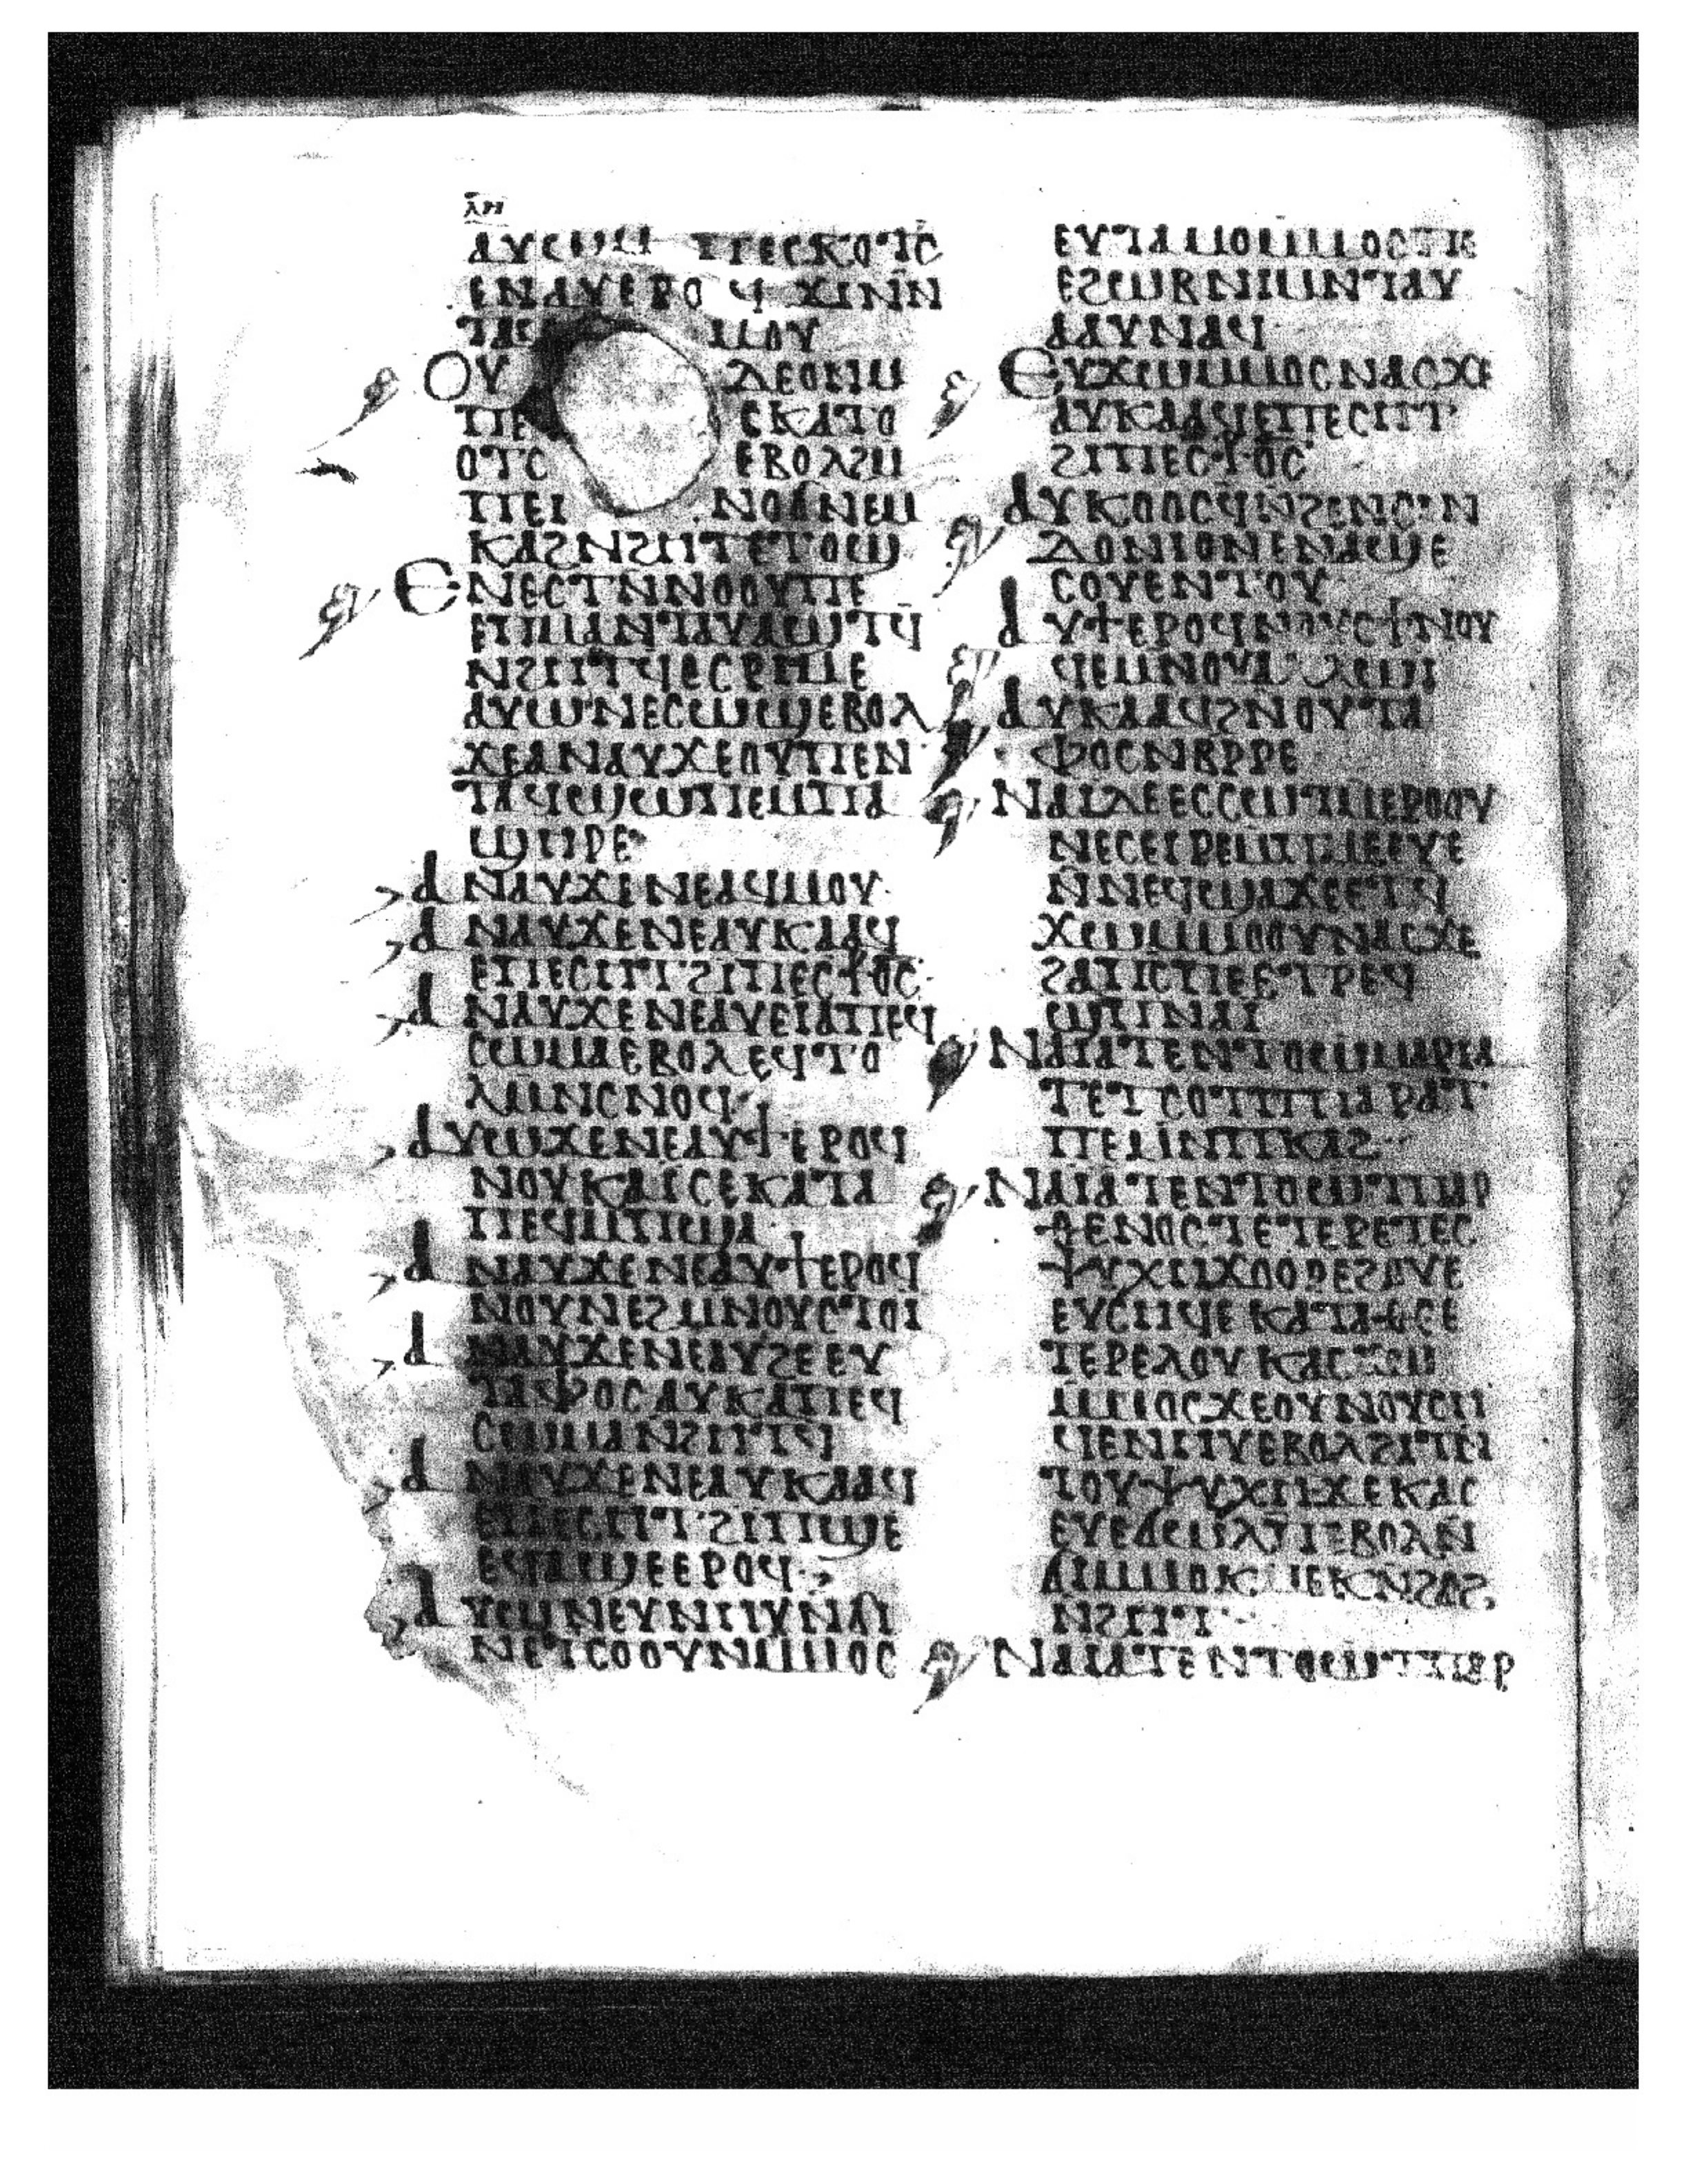 ⲗⲏ
ⲉⲛⲁⲩⲉⲃⲟ ϥ ϫⲓⲛⲛ
ⲙⲟⲩ
ⲟⲩ ⲇⲉⲟⲛⲙ
ⲡⲉ ⲥⲕⲁⲧⲟ
ⲟⲧⲥ ⲉⲃⲟⲗϩⲙ
ⲡⲉⲓ ⲛⲟϭⲛⲉⲙ
ⲕⲁϩⲛϩⲏⲧⲉⲧⲟϣ
ⲉⲛⲉⲥⲧⲛⲛⲟⲟⲩⲡⲉ
ⲉⲡⲙⲁⲛⲧⲁⲩⲁϣⲧϥ
ⲛϩⲏⲧϥⲉⲥⲣⲓⲙⲉ
ⲁⲩⲱⲛⲉⲥⲱϣⲉⲃⲟⲗ
ϫⲉⲁⲛⲁⲩϫⲉⲟⲩⲡⲉⲛ
ⲧⲁϥϣⲱⲡⲉⲙⲡⲁ
ϣⲏⲣⲉ
ⲁⲛⲁⲩϫⲉⲛⲉⲁϥⲙⲟⲩ
ⲁⲛⲁⲩϫⲉⲛⲉⲁⲩⲕⲁⲁϥ
ⲉⲡⲉⲥⲏⲧϩⲓⲡⲉⲥϯⲟⲥ
ⲁⲛⲁⲩϫⲉⲛⲉⲁⲩⲉⲓⲁⲡⲉϥ
ⲥⲱⲙⲁⲉⲃⲟⲗⲉϥⲧⲟ
ⲗⲙⲛⲥⲛⲟϥ
ⲁⲩⲱϫⲉⲛⲉⲁⲩϯⲉⲣⲟϥ
ⲛⲟⲩⲕⲁⲓⲥⲉⲕⲁⲧⲁ
ⲡⲉϥⲙⲡϣⲁ
ⲁⲛⲁⲩϫⲉⲛⲉⲁⲩϯⲉⲣⲟϥ
ⲛⲟⲩⲛⲉϩⲙⲛⲟⲩⲥⲧⲟⲓ
ⲁⲛⲁⲩϫⲉⲛⲉⲁⲩϩⲉⲉⲩ
ⲧⲁⲫⲟⲥⲁⲩⲕⲁⲡⲉϥ
ⲥⲱⲙⲁⲛϩⲏⲧϥ
ⲁⲛⲁⲩϫⲉⲛⲉⲁⲩⲕⲁⲁϥ
ⲉⲡⲉⲥⲏⲧϩⲓⲡϣⲉ
ⲉϥⲁϣⲉⲉⲣⲟϥ
ⲁⲩⲱⲛⲉⲩⲛⲏⲩⲛϭⲓ
ⲛⲉⲧⲥⲟⲟⲩⲛⲙⲙⲟⲥ
ⲉⲩⲧⲁⲙⲟⲙⲙⲟⲥⲡⲉ
ⲉϩⲱⲃⲛⲓⲙⲛⲧⲁⲩ
ⲁⲁⲩⲛⲁϥ
ⲉⲩϫⲱⲙⲙⲟⲥⲛⲁⲥϫⲉ
ⲁⲩⲕⲁⲁϥⲉⲡⲉⲥⲏⲧ
ϩⲓⲡⲉⲥϯⲟⲥ
ⲁⲩⲕⲟⲟⲥϥⲛϩⲉⲛⲥⲓⲛ
ⲇⲟⲛⲓⲟⲛⲉⲛⲁϣⲉ
ⲥⲟⲩⲉⲛⲧⲟⲩ
ⲁⲩϯⲉⲣⲟϥⲛⲟⲩⲥϯⲛⲟⲩ
ϥⲉⲙⲛⲟⲩⲁⲗⲱⲏ
ⲁⲩⲕⲁⲁϥϩⲛⲟⲩⲧⲁ
ⲫⲟⲥⲛⲃⲣⲣⲉ
ⲛⲁⲓⲇⲉⲉⲥⲥⲱⲧⲙⲉⲣⲟⲟⲩ
ⲛⲉⲥⲉⲓⲣⲉⲙⲡⲙⲉⲉⲩⲉ
ⲛⲛⲉϥϣⲁϫⲉⲉⲧϥ
ϫⲱⲙⲙⲟⲟⲩⲛⲁⲥϫⲉ
ϩⲁⲡⲥⲡⲉⲉⲧⲣⲉϥ
ϣⲡⲛⲁⲓ
ⲛⲁⲓⲁⲧⲉⲛⲧⲟⲱⲙⲁⲣⲓⲁ
ⲧⲉⲧⲥⲟⲧⲡⲡⲁⲣⲁⲧ
ⲡⲉⲙⲛⲧⲕⲁϩ
ⲛⲁⲓⲁⲧⲉⲛⲧⲟⲱⲧⲡⲁⲣ
ⲑⲉⲛⲟⲥⲧⲉⲧⲉⲣⲉⲧⲉⲥ
ⲯⲩⲭⲏϫⲟⲟⲣⲉϩⲟⲩⲉ
ⲉⲩⲥⲏϥⲉⲕⲁⲧⲁⲑⲉ
ϫⲉⲟⲩⲛⲟⲩⲥⲏ
ϥⲉⲛⲏⲩⲉⲃⲟⲗϩⲓⲧⲛ
ⲧⲟⲩⲯⲩⲭⲏϫⲉⲕⲁⲥ
ⲉⲩⲉϭⲱⲗⲡⲉⲃⲟⲗⲛ
ⲛϩⲏⲧ
ⲛⲁⲓⲁⲧⲉⲛⲧⲟⲱⲧⲡⲁⲣ